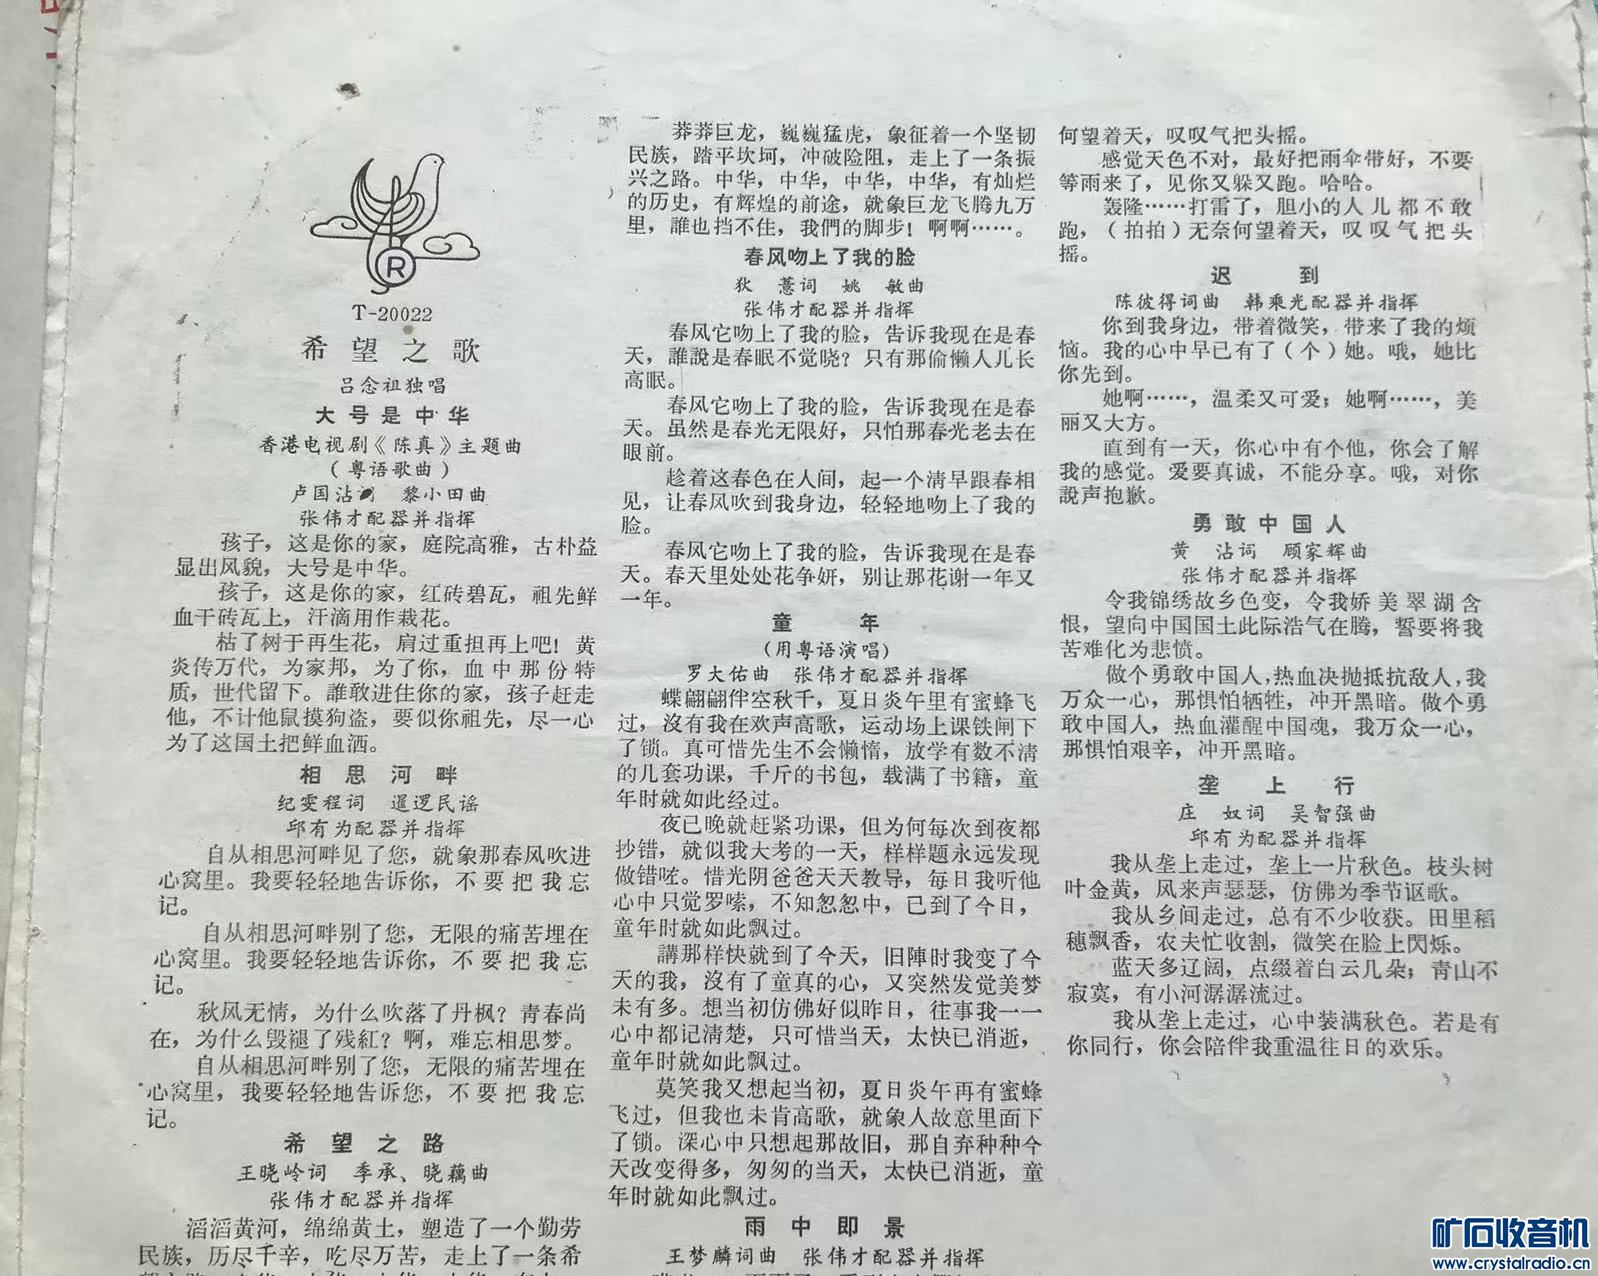 R
T-20022
希望之歌
吕念祖独唱
大号是中华
香港电视剧《陈真》主题曲
(粤语歌曲)
卢国沾 黎小田曲
张伟才配器并指挥
孩子，这是你的家，庭院高雅，古朴益
显出风貌，大号是中华。
孩子，这是你的家，红砖碧瓦，祖先鲜
血干砖瓦上，汗滴用作栽花。
枯了树于再生花，肩过重担再上吧！黄
炎传万代，为家邦，为了你，血中那份特
质，世代留下。誰敢进住你的家，孩子赶走
他，不计他鼠摸狗盗，要似你祖先，尽一心
为了这国土把鲜血洒。
相思河畔
纪雯程词 暹逻民谣
邱有为配器并指挥
自从相思河畔见了您，就象那春风吹进
心窝里。我要轻轻地告诉你，不要把我忘
记。
自从相思河畔别了您，无限的痛苦埋在
心窝里。我要轻轻地告诉你，不要把我忘
记。
秋风无情，为什么吹落了丹枫？青春尚
在，为什么毁褪了残紅？啊，难忘相思梦。
自从相思河畔别了您，无限的痛苦埋在
心窝里，我要轻轻地告诉您，不要把我忘
记。
希望之路
王晓岭词 季承、晓藕曲
张伟才配器并指挥
滔滔黄河，绵绵黄土，塑造了一个勤劳
民族，历尽千辛，吃尽万苦，走上了一条希
莽莽巨龙，巍巍猛虎，象征着一个坚韧
民族，踏平坎坷，冲破险阻，走上了一条振
兴之路。中华，中华，中华，中华，有灿烂
的历史，有辉煌的前途，就象巨龙飞腾九万
里，誰也挡不住，我們的脚步！啊啊……。
春风吻上了我的脸
狄薏词 姚敏曲
张伟才配器并指挥
春风它吻上了我的脸，告诉我现在是春
天，誰說是春眠不觉晓？只有那偷懒人儿长
高眠。
春风它吻上了我的脸，告诉我现在是春
天。虽然是春光无限好，只怕那春光老去在
眼前。
趁着这春色在人间，起一个清早跟春相
见，让春风吹到我身边，轻轻地吻上了我的
脸。
春风它吻上了我的脸，告诉我现在是春
天。春天里处处花争妍，别让那花谢一年又
一年。
童年
(用粤语演唱)
罗大佑曲 张伟才配器并指挥
蝶翩翩伴空秋千，夏日炎午里有蜜蜂飞
过，沒有我在欢声高歌，运动场上课铁闸下
了锁。真可惜先生不会懒惰，放学有数不清
的几套功课，千斤的书包，载满了书籍，童
年时就如此经过。
夜已晚就赶紧功课，但为何每次到夜都
抄错，就似我大考的一天，样样题永远发现
做错咗。惜光阴爸爸天天教导，每日我听他
心中只觉罗嗦，不知怱怱中，已到了今日，
童年时就如此飘过。
講那样快就到了今天，旧陣时我变了今
天的我，沒有了童真的心，又突然发觉美梦
未有多。想当初仿佛好似昨日，往事我一一
心中都记淸楚，只可惜当天，太快已消逝，
童年时就如此飘过。
莫笑我又想起当初，夏日炎午再有蜜蜂
飞过，但我也未肯高歌，就象人故意里面下
了锁。深心中只想起那故旧，那自弃种种今
天改变得多，匆匆的当天，太快已消逝，童
年时就如此飘过。
雨中即景
王梦麟词曲 张伟才配器并指挥
何望着天，叹叹气把头摇。
感觉天色不对，最好把雨伞带好，不要
等雨来了，见你又躲又跑。哈哈。
轰隆……打雷了，胆小的人儿都不敢
跑，(拍拍)无奈何望着天，叹叹气把头
摇。
迟到
陈彼得词曲 韩乘光配器并指挥
你到我身边，带着微笑，带来了我的烦
恼。我的心中早已有了(个)她。哦，她比
你先到。
她啊……，温柔又可爱；她啊……，美
丽又大方。
直到有一天，你心中有个他，你会了解
我的感觉。爱要真诚，不能分享。哦，对你
說声抱歉。
勇敢中国人
黄沾词 顾家辉曲
张伟才配器并指挥
令我锦绣故乡色变，令我娇美翠湖含
恨，望向中国国土此际浩气在腾，誓要将我
苦难化为悲愤。
做个勇敢中国人，热血决抛抵抗敌人，我
万众一心，那惧怕牺牲，冲开黑暗。做个勇
敢中国人，热血灌醒中国魂，我万众一心，
那惧怕艰辛，冲开黑暗。
垄上行
庄奴词 吴智强曲
邱有为配器并指挥
我从垄上走过，垄上一片秋色。枝头树
叶金黄，风来声瑟瑟，仿佛为季节讴歌。
我从乡间走过，总有不少收获。田里稻
穗飘香，农夫忙收割，微笑在脸上閃烁。
蓝天多辽阔，点缀着白云几朵；青山不
寂寞，有小河潺潺流过。
我从垄上走过，心中装满秋色。若是有
你同行，你会陪伴我重温往日的欢乐。
矿石收音机
www.crystalradio.cn